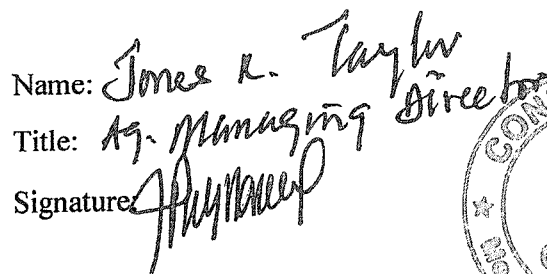 Name: Jones R. Taylor
Title: Ag. Managing Director
Signature:
CON
MON